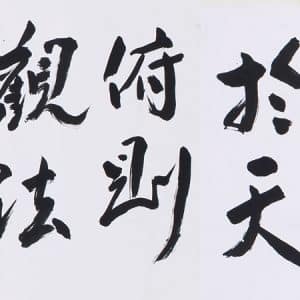 於天
俯則
観法